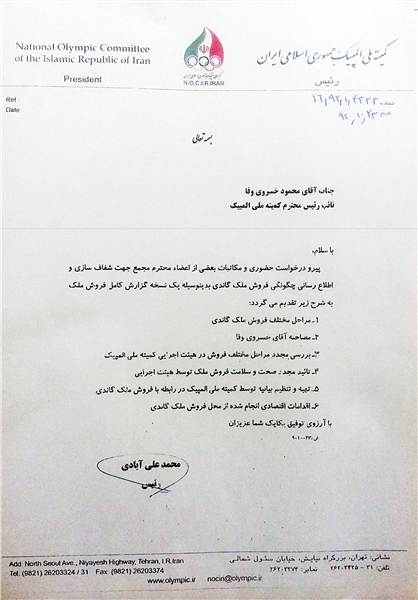 National Olympic Committee
of the Islamic Republic of Iran
President
N.O.C.I.R.IRAN
کمیته ملی المپیک جمهوری اسلامی ایران
رئیس
Ref
Date
شماره ۱۶٫۹۲٫۱٫۴۳۳۳
۹۲٫۱۰٫۲۳
بسمه تعالی
جناب آقای محمود خسروی وفا
نائب رئیس محترم کمیته ملی المپیک
با سلام،
پیرو درخواست حضوری و مکاتبات بعضی از اعضاء محترم مجمع جهت شفاف سازی و
اطلاع رسانی چگونگی فروش ملک گاندی بدینوسیله یک نسخه گزارش کامل فروش ملک
به شرح زیر تقدیم می گردد:
۱ـ مراحل مختلف فروش ملک گاندی
۲ـ مصاحبه آقای خسروی وفا
۳ـ بررسی مجدد مراحل مختلف فروش در هیئت اجرایی کمیته ملی المپیک
۴ـ تائید مجدد صحت و سلامت فروش ملک توسط هیئت اجرایی
۵ـ تهیه و تنظیم بیانیه توسط کمیته ملی المپیک در رابطه با فروش ملک گاندی
۶ـ اقدامات اقتصادی انجام شده از محل فروش ملک گاندی
با آرزوی توفیق یکایک شما عزیزان
محمد علی آبادی
رئیس
نشانی: تهران، بزرگراه نیایش، خیابان سئول شمالی
تلفن: ۳۱ - ۲۶۲۰۳۳۲۵ نمابر: ۲۶۲۰۳۳۷۴
Add: North Seoul Ave., Niyayesh Highway, Tehran, I.R.Iran
Tel: (9821) 26203324 / 31 Fax: (9821) 26203374
www.olympic.ir nociri@olympic.ir